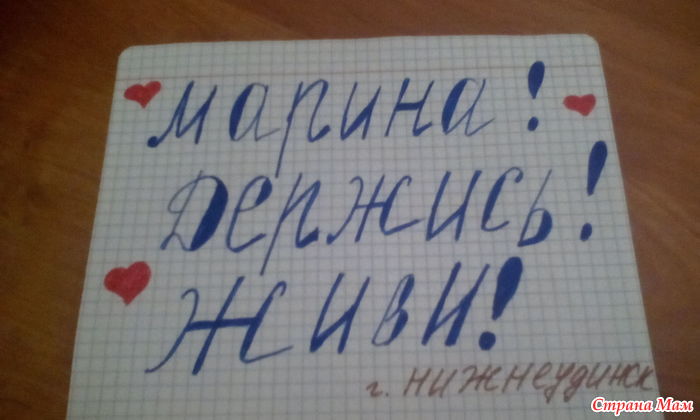 Марина!
Держись!
Живи!
г. Нижнеудинск
Страна Мам